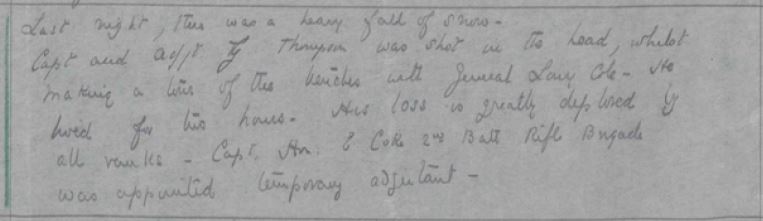 Last night, there was a heavy fall of snow -
Capt and adjt Thompson was shot in the head, whilst
making a tour of the trenches with General Lowry Cole - He
lived for two hours - His loss is greatly deplored by
all ranks - Capt. Hon. E Coke 2nd Batt Rifle Brigade
was appointed temporary adjutant -